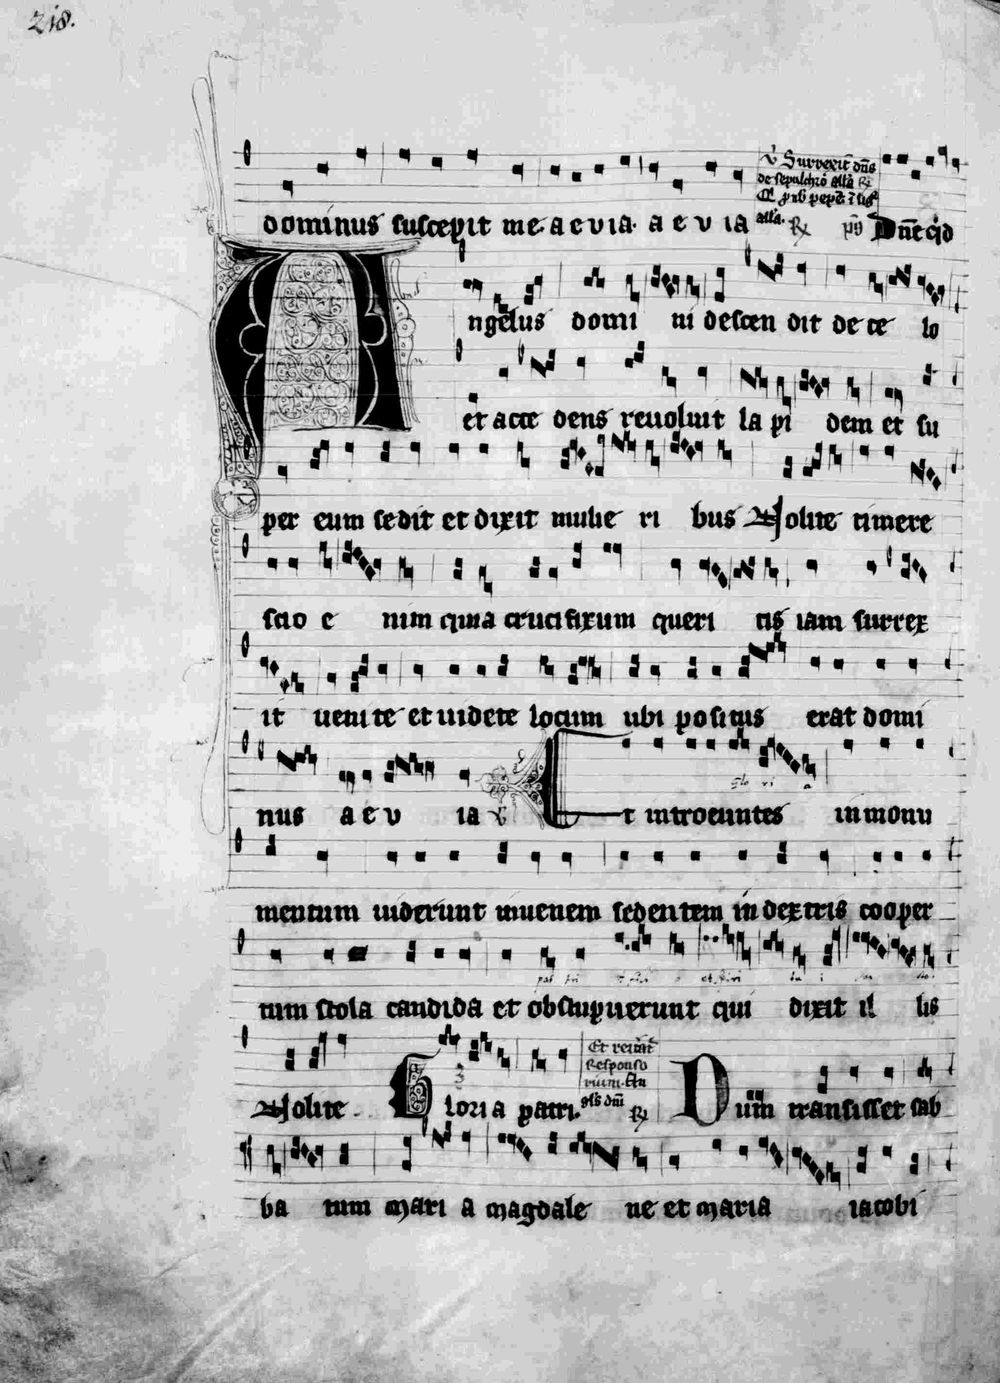 218.
dominus suscepit me. a e v ia. a e v ia
v̄ Surrexit dn̄s
de sepulchro all'a
all'a. ℟ Dn̄e q̇d
Angelus domi ni descen dit de ce lo
et acce dens reuoluit la pi dem et su
per eum sedit et dixit mulie ri bus Nolite timere
scio e nim quia crucifixum queri tis iam surrex
it ueni te et uidete locum ubi positus erat domi
Glo ri a
nus a e v ia ℣ Et introeuntes in monu
mentum uiderunt iuuenem sedentem in dextris cooper
pat tri et fili o et spiri tu i
tum stola candida et obstupuerunt qui dixit il lis
Et reiterat̄
Responso
rium
Nolite Gloria patri. ℟ Dum transisset sab
ba tum mari a magdale ne et maria iacobi